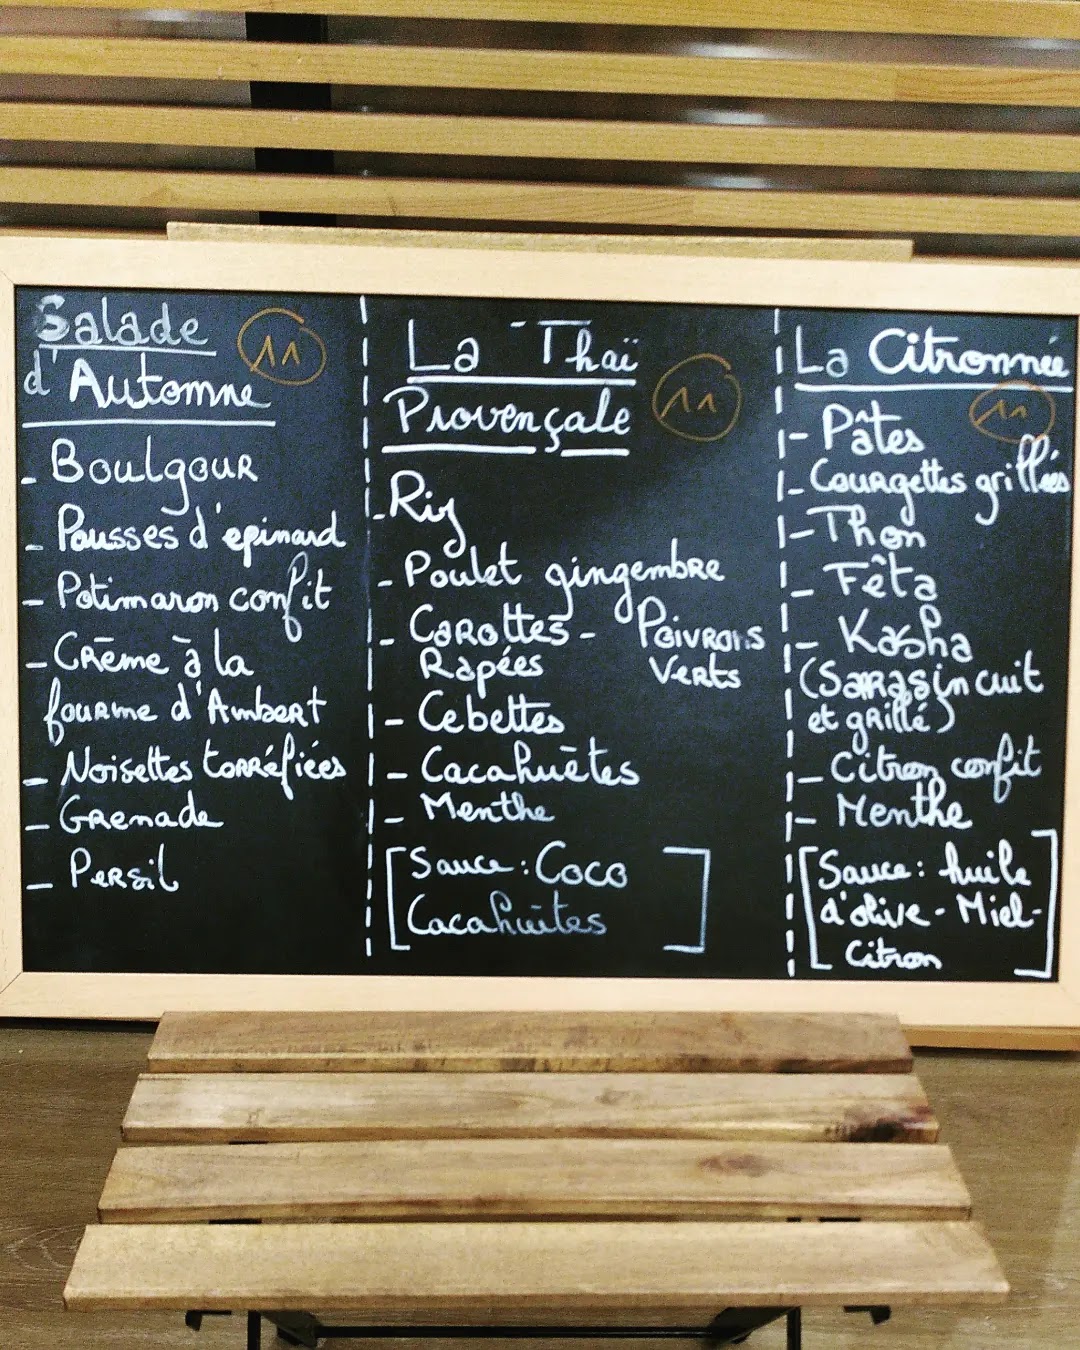 Salade
d'Automne
11
- Boulgour
- Pousses d'epinard
- Potimaron confit
- Crème à la
fourme d'Ambert
- Noisettes torréfiées
- Grenade
- Persil
La Thaï
Provençale
11
- Riz
- Poulet gingembre
- Carottes - Poivrons
Rapées Verts
- Cebettes
- Cacahuètes
- Menthe
[Sauce : Coco
Cacahuètes]
La Citronnée
11
- Pâtes
- Courgettes grillées
- Thon
- Fêta
- Kasha
(Sarrasin cuit
et grillé)
- Citron confit
- Menthe
[Sauce : huile
d'olive - Miel -
Citron]